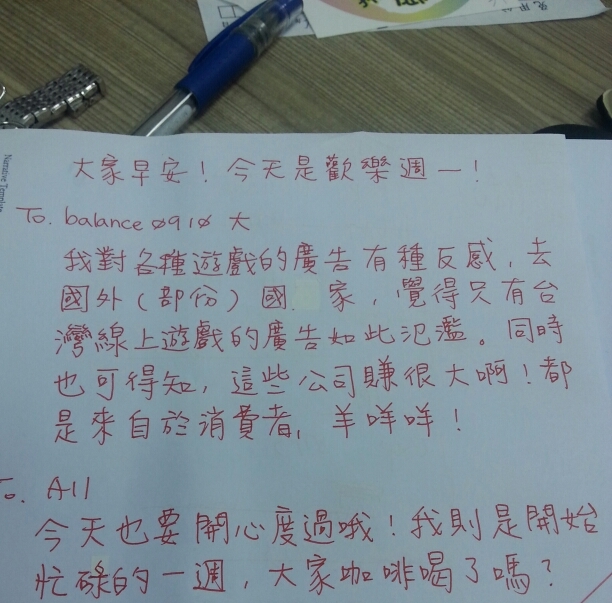 大家早安！今天是歡樂週一！
To. balance 0910 大
我對各種遊戲的廣告有種反感，去
國外（部份）國 家，覺得只有台
灣線上遊戲的廣告如此氾濫。同時
也可得知，這些公司賺很大啊！都
是來自於消費者，羊咩咩！
To. All
今天也要開心度過哦！我則是開始
忙碌的一週，大家咖啡喝了嗎？
Narrative Template